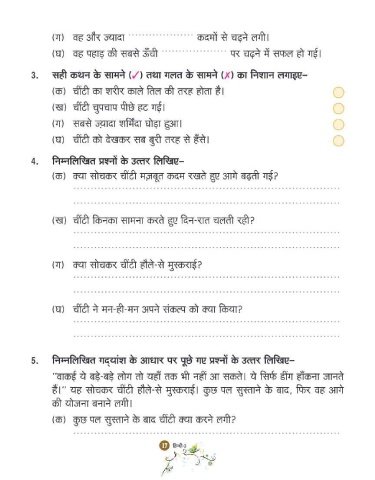 (ग) वह और ज्यादा ................ कदमों से चढ़ने लगी।
(घ) वह पहाड़ की सबसे ऊँची ................ पर चढ़ने में सफल हो गई।
3. सही कथन के सामने (✓) तथा गलत के सामने (✗) का निशान लगाइए–
(क) चींटी का शरीर काले तिल की तरह होता है।
(ख) चींटी चुपचाप पीछे हट गई।
(ग) सबसे ज़्यादा शर्मिंदा घोड़ा हुआ।
(घ) चींटी को देखकर सब बुरी तरह से हँसे।
4. निम्नलिखित प्रश्नों के उत्तर लिखिए–
(क) क्या सोचकर चींटी मज़बूत कदम रखते हुए आगे बढ़ती गई?
(ख) चींटी किनका सामना करते हुए दिन-रात चलती रही?
(ग) क्या सोचकर चींटी हौले-से मुस्कराई?
(घ) चींटी ने मन-ही-मन अपने संकल्प को क्या किया?
5. निम्नलिखित गद्यांश के आधार पर पूछे गए प्रश्नों के उत्तर लिखिए–
"वाकई ये बड़े-बड़े लोग तो यहाँ तक भी नहीं आ सकते। ये सिर्फ हींग हाँकना जानते
हैं।" यह सोचकर चींटी हौले-से मुस्कराई। कुछ पल सुस्ताने के बाद, फिर वह आगे
की योजना बनाने लगी।
(क) कुछ पल सुस्ताने के बाद चींटी क्या करने लगी?
17 हिन्दी-3